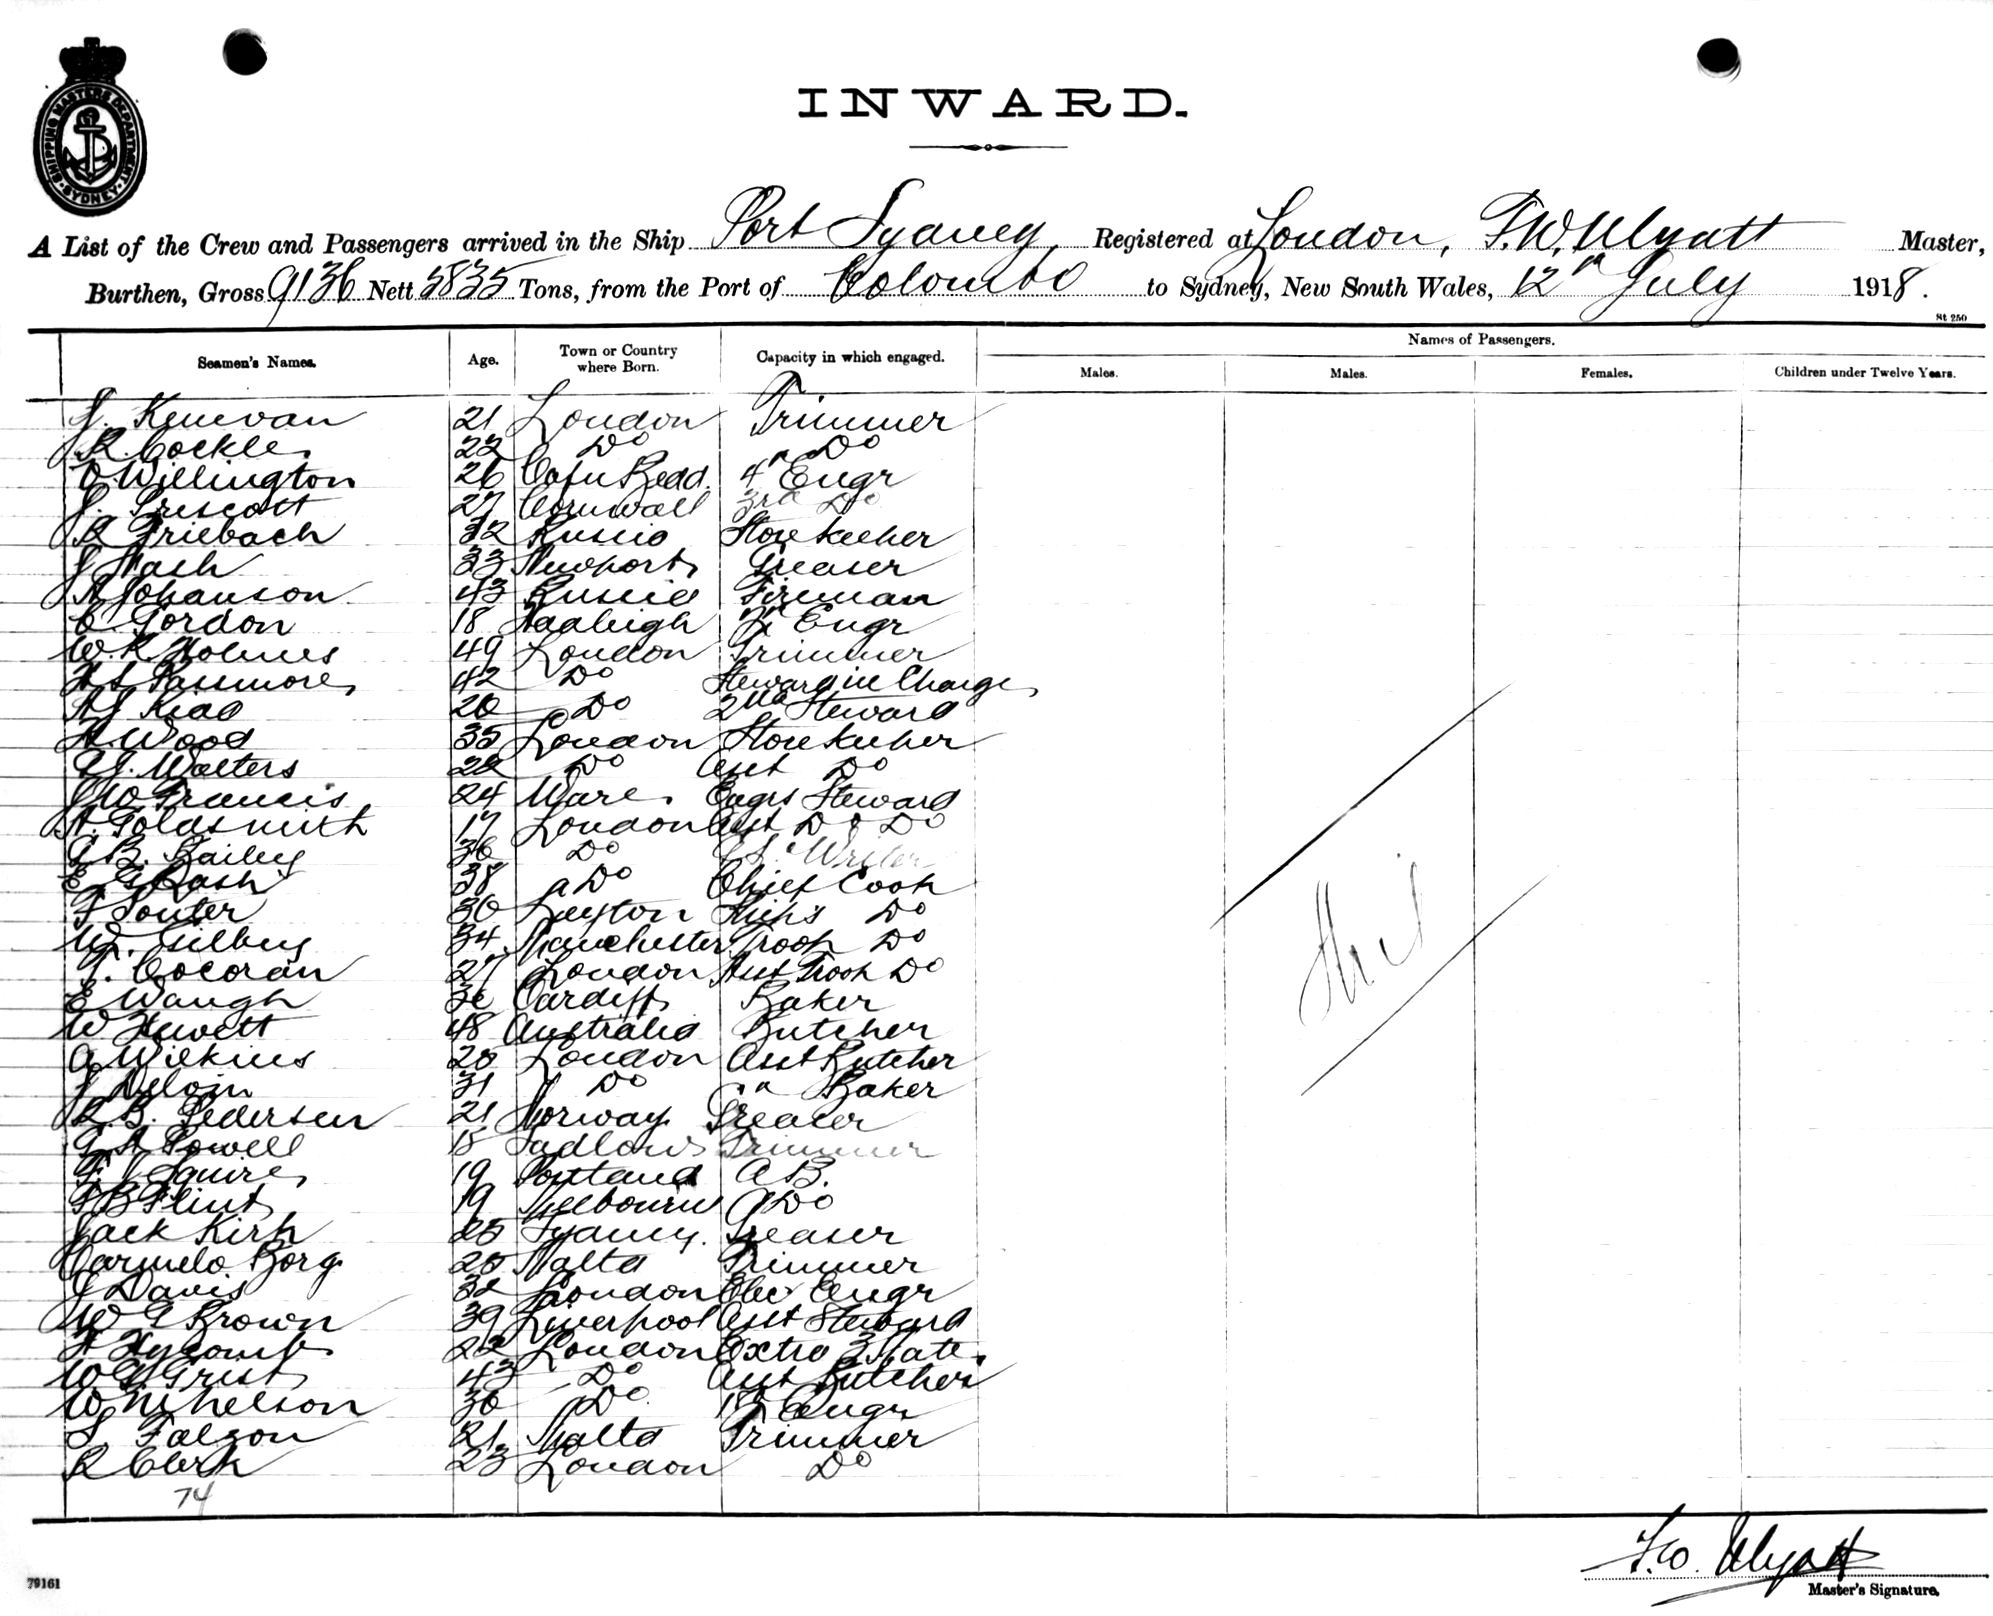 SHIPPING MASTERS DEPARTMENT SYDNEY
INWARD.
A List of the Crew and Passengers arrived in the Ship Port Sydney, Registered at London, F.W. Wyatt Master,
Burthen, Gross 9136 Nett 5835 Tons, from the Port of Colombo to Sydney, New South Wales, 12th July 1918.
St 250
Names of Passengers.
Seamen's Names. Age. Town or Country where Born. Capacity in which engaged. Males. Males. Females. Children under Twelve Years.
J. Kenevan 21 London Trimmer
R. Cockle 22 Do Do
Willington 26 4th Engr
J. Prescott 27 Cornwall 3rd Do
R Griebach 32 Russia Storekeeper
J Nash 33 Newport Greaser
A Johanson 43 Russia Fireman
C. Gordon 18 Hadleigh Engr
W. R. Holmes 49 London Trimmer
Passmore 42 Do Steward in Charge
20 Do 2nd Steward
A Wood 35 London Storekeeper
Walters 22 Do Asst Do
J W Francis 24 Ware Engrs Steward
A. Goldsmith 17 London Asst Do Do
B. Bailey 36 Do Writer
E G Dash 38 Do Chief Cook
F Souter 30 Leyton Ships Do
W. Gilbey 34 Manchester Troop Do
T. Cocoran 27 London Asst Troop Do
E Waugh 36 Cardiff Baker
W Hewett 48 Australia Butcher
A Wilkins 20 London Asst Butcher
31 Do " Baker
R. B. Pedersen 21 Norway Greaser
Powell 18 Ludlow Trimmer
F. Squire 19 Portland A B.
F B Flint 19 Melbourne Do
Jack Kirk 25 Sydney. Greaser
Carmelo Borg 25 Malta Trimmer
J Davis 32 London Elec Engr
W G Brown 39 Liverpool Asst Steward
H 22 London Extra 3 Mate
W G Grist 43 Do Asst Butcher
W Nelson 36 Do Engr
S Falzon 21 Malta Trimmer
R Clerk 23 London Do
74
Nil
F.W. Wyatt
Master's Signature.
79161